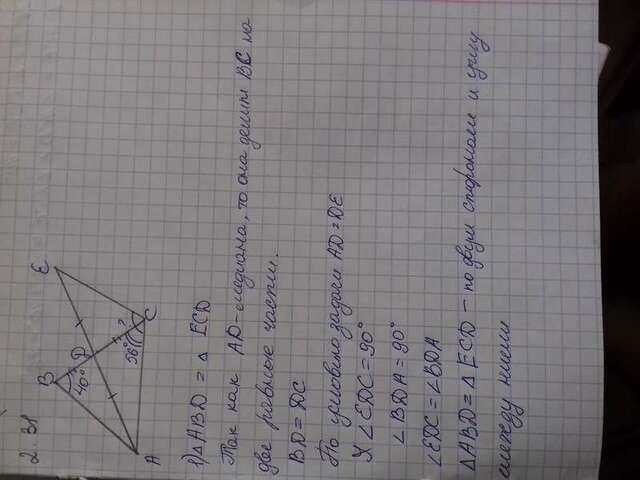 2 31
B
E
D
40°
56°
?
A
C
1) △ABD = △ ECD
Так как AD-медиана, то она делит BC на
две равные части.
BD = DC
По условию задачи AD = DE
∠EDC = 90°
∠BDA = 90°
∠EDC = ∠BDA
△ABD = △ ECD – по двум сторонам и углу
между ними